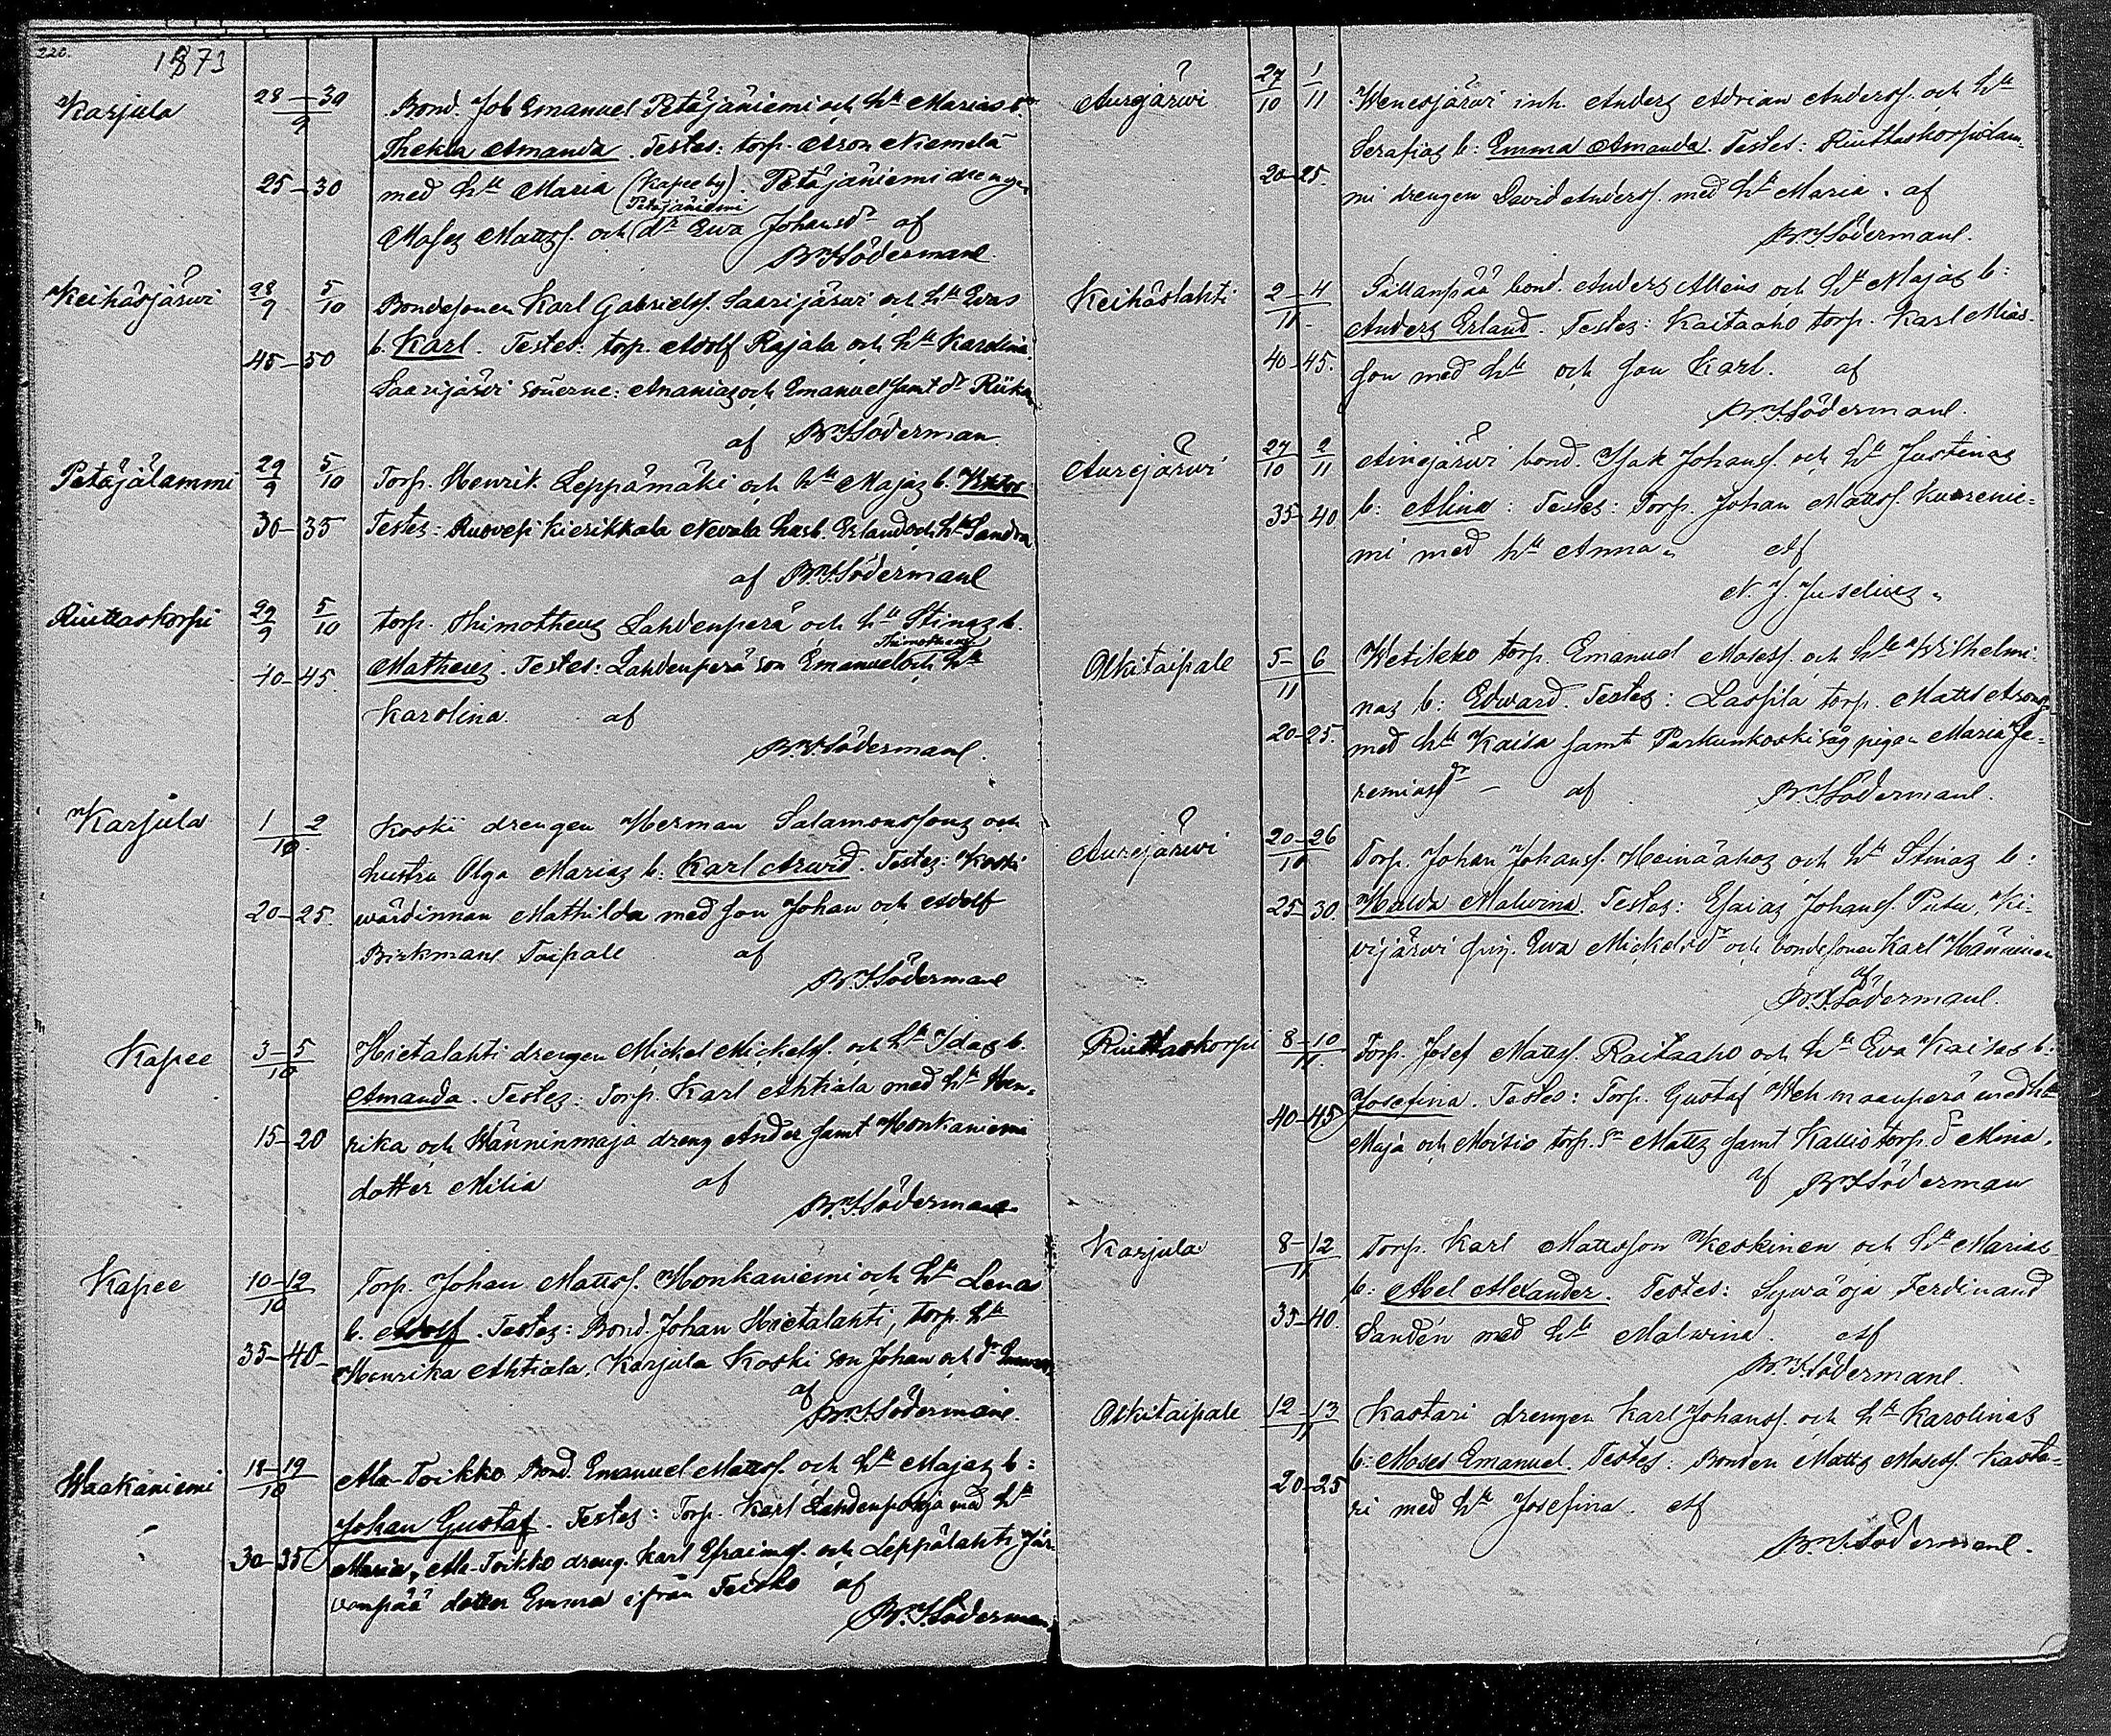 220.
1873
Karjula 28 — 30 Bond. Job Emanuel Petäjäniemi och h:u Marias b:n
9
Thekla Amanda. Testes: torp. Aron Niemelä
25 — 30 med h:u Maria (Kapeeby). Petäjäniemi drengen
Petäjäniemi
Moses Mattss. och d:r Ewa Johansd:r af
Br. I. Söderman
Keihäsjärwi 28/9 5/10 Bondesonen Karl Gabrielss. Saarijärwi och h:u Ewas
45 — 50 b. Karl. Testes: torp. Adolf Rajala och h:u Karolina.
Saarijärwi sönerne: Ananias och Emanuel samt d:r Riika
af Br. I. Söderman
Petäjälammi 29/9 5/10 Torp. Henrik Leppämäki och h:u Majas b. Viktor
30 — 35 Testes: Ruovesi Kierikkala Nevala Erland och h:u Sandra
af Br. I. Söderman
Riuttaskorpi 29/9 5/10 torp. Thimotheus Lahdenperä och h:u Stinas b.
Thimotheus
40 — 45. Matheus. Testes: Lahdenperä son Emanuel och h:u
Karolina. af
Br. I. Söderman.
Karjula 1 — 2 Koski drengen Herman Salamonssons och
10
hustru Olga Marias b. Karl Arwid. Testes: Koski
20 — 25. wärdinnan Mathilda med son Johan och Adolf
Birkman Taipale af
Br. I. Söderman
Kapee 3 — 5 Hietalahti drengen Mickel Mickelss. och h:u Idas b.
10
Amanda. Testes: Torp. Karl Ahtiala med h:u Hen-
15 — 20 rika och Hänninmaja dreng Ander samt Honkaniemi
dotter Milia af
Br. I. Söderman
Kapee 10 — 12 Torp. Johan Mattss. Honkaniemi och h:u Lenas
10
b. Adolf. Testes: Bond. Johan Hietalahti, torp. h:u
35 — 40 Henrika Ahtiala, Karjula Koski son Johan och d:r
af
Br. I. Söderman.
Waakaniemi 18 — 19 Ala-Toikko Bond. Emanuel Mattss. och h:u Majas b:
10
Johan Gustaf. Testes: Torp. Karl Lahdenpohja med h:u
30 — 35 Maria, Ala-Toikko dreng. Karl Efraimss. och Leppälahti Jär-
wenpää dotter Emma ifrån Teisko af
Br. I. Söderman.
Aurejärwi 27/10 1/11 Wenesjärwi inh. Anders Adrian Anderss. och h:u
Serafias b: Emma Amanda. Testes: Riuttaskorpi Lam-
20 — 25. mi drengen David Anderss. med h:u Maria. af
Br. I. Söderman.
Keihäslahti 2 — 4 Sillanpää bond. Anders Allens och h:u Majas b:
11.
Anders Erland. Testes: Kaitaaho torp. Karl Mias-
40 — 45. son med h:u och son Karl. af
Br. I. Söderman.
Aurejärwi 27/10 2/11 Ainesjärwi bond. Isak Johanss. och h:u Justinas
35 — 40 b: Alina: Testes: Torp. Johan Mattss. Kuorenie=
mi med h:u Anna. Af
N. J. Juselius.
Olkitaipale 5 — 6 Wetikko torp. Emanuel Mosess. och h:u Wilhelmi-
11
nas b: Edward. Testes: Lassila torp. Matts Arons.
20 — 25. med h:u Kaisa samt Parkunkoski såg pigan Maria Je=
remiasd:r — af Br. I. Söderman.
Aurejärwi 20 — 26 Torp. Johan Johanss. Heinäahos och h:u Stinas b:
10
25 — 30. Hulda Malwina. Testes: Esaias Johanss. Putu, Ki-
wijärwi pig. Ewa Mickelsd:r och bondesonen Karl Hänninen
af
Br. I. Söderman.
Riuttaskorpi 8 — 10 Torp. Josef Mattss. Raitaaho och h:u Eva Kaisas b:
11.
Josefina. Testes: Torp. Gustaf Wehmaanperä med h:u
40 — 45 Maja och Moisio torp. s:n Matts samt Kallio torp. d:r Mina.
af Br. I. Söderman
Karjula 8 — 12 Torp. Karl Mattsson Keskinen och h:u Marias
11
b: Abel Alexander. Testes: Sywäoja Ferdinand
35 — 40. Sandén med h:u Malwina. Af
Br. I. Söderman.
Olkitaipale 12 — 13 Kastari drengen Karl Johanss. och h:u Karolinas
11
b: Moses Emanuel. Testes: Bonden Matts Mosess. Kasta=
20 — 25 ri med h:u Josefina. Af
Br. I. Söderman.